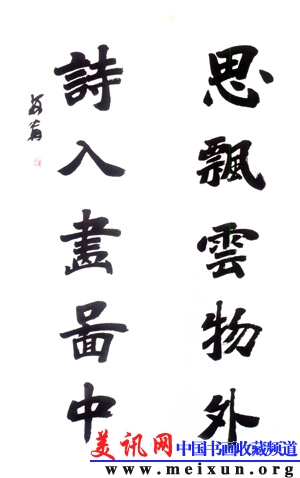 思飄雲物外
詩入畫啚中
美讯网
中国书画收藏频道
www.meixun.org